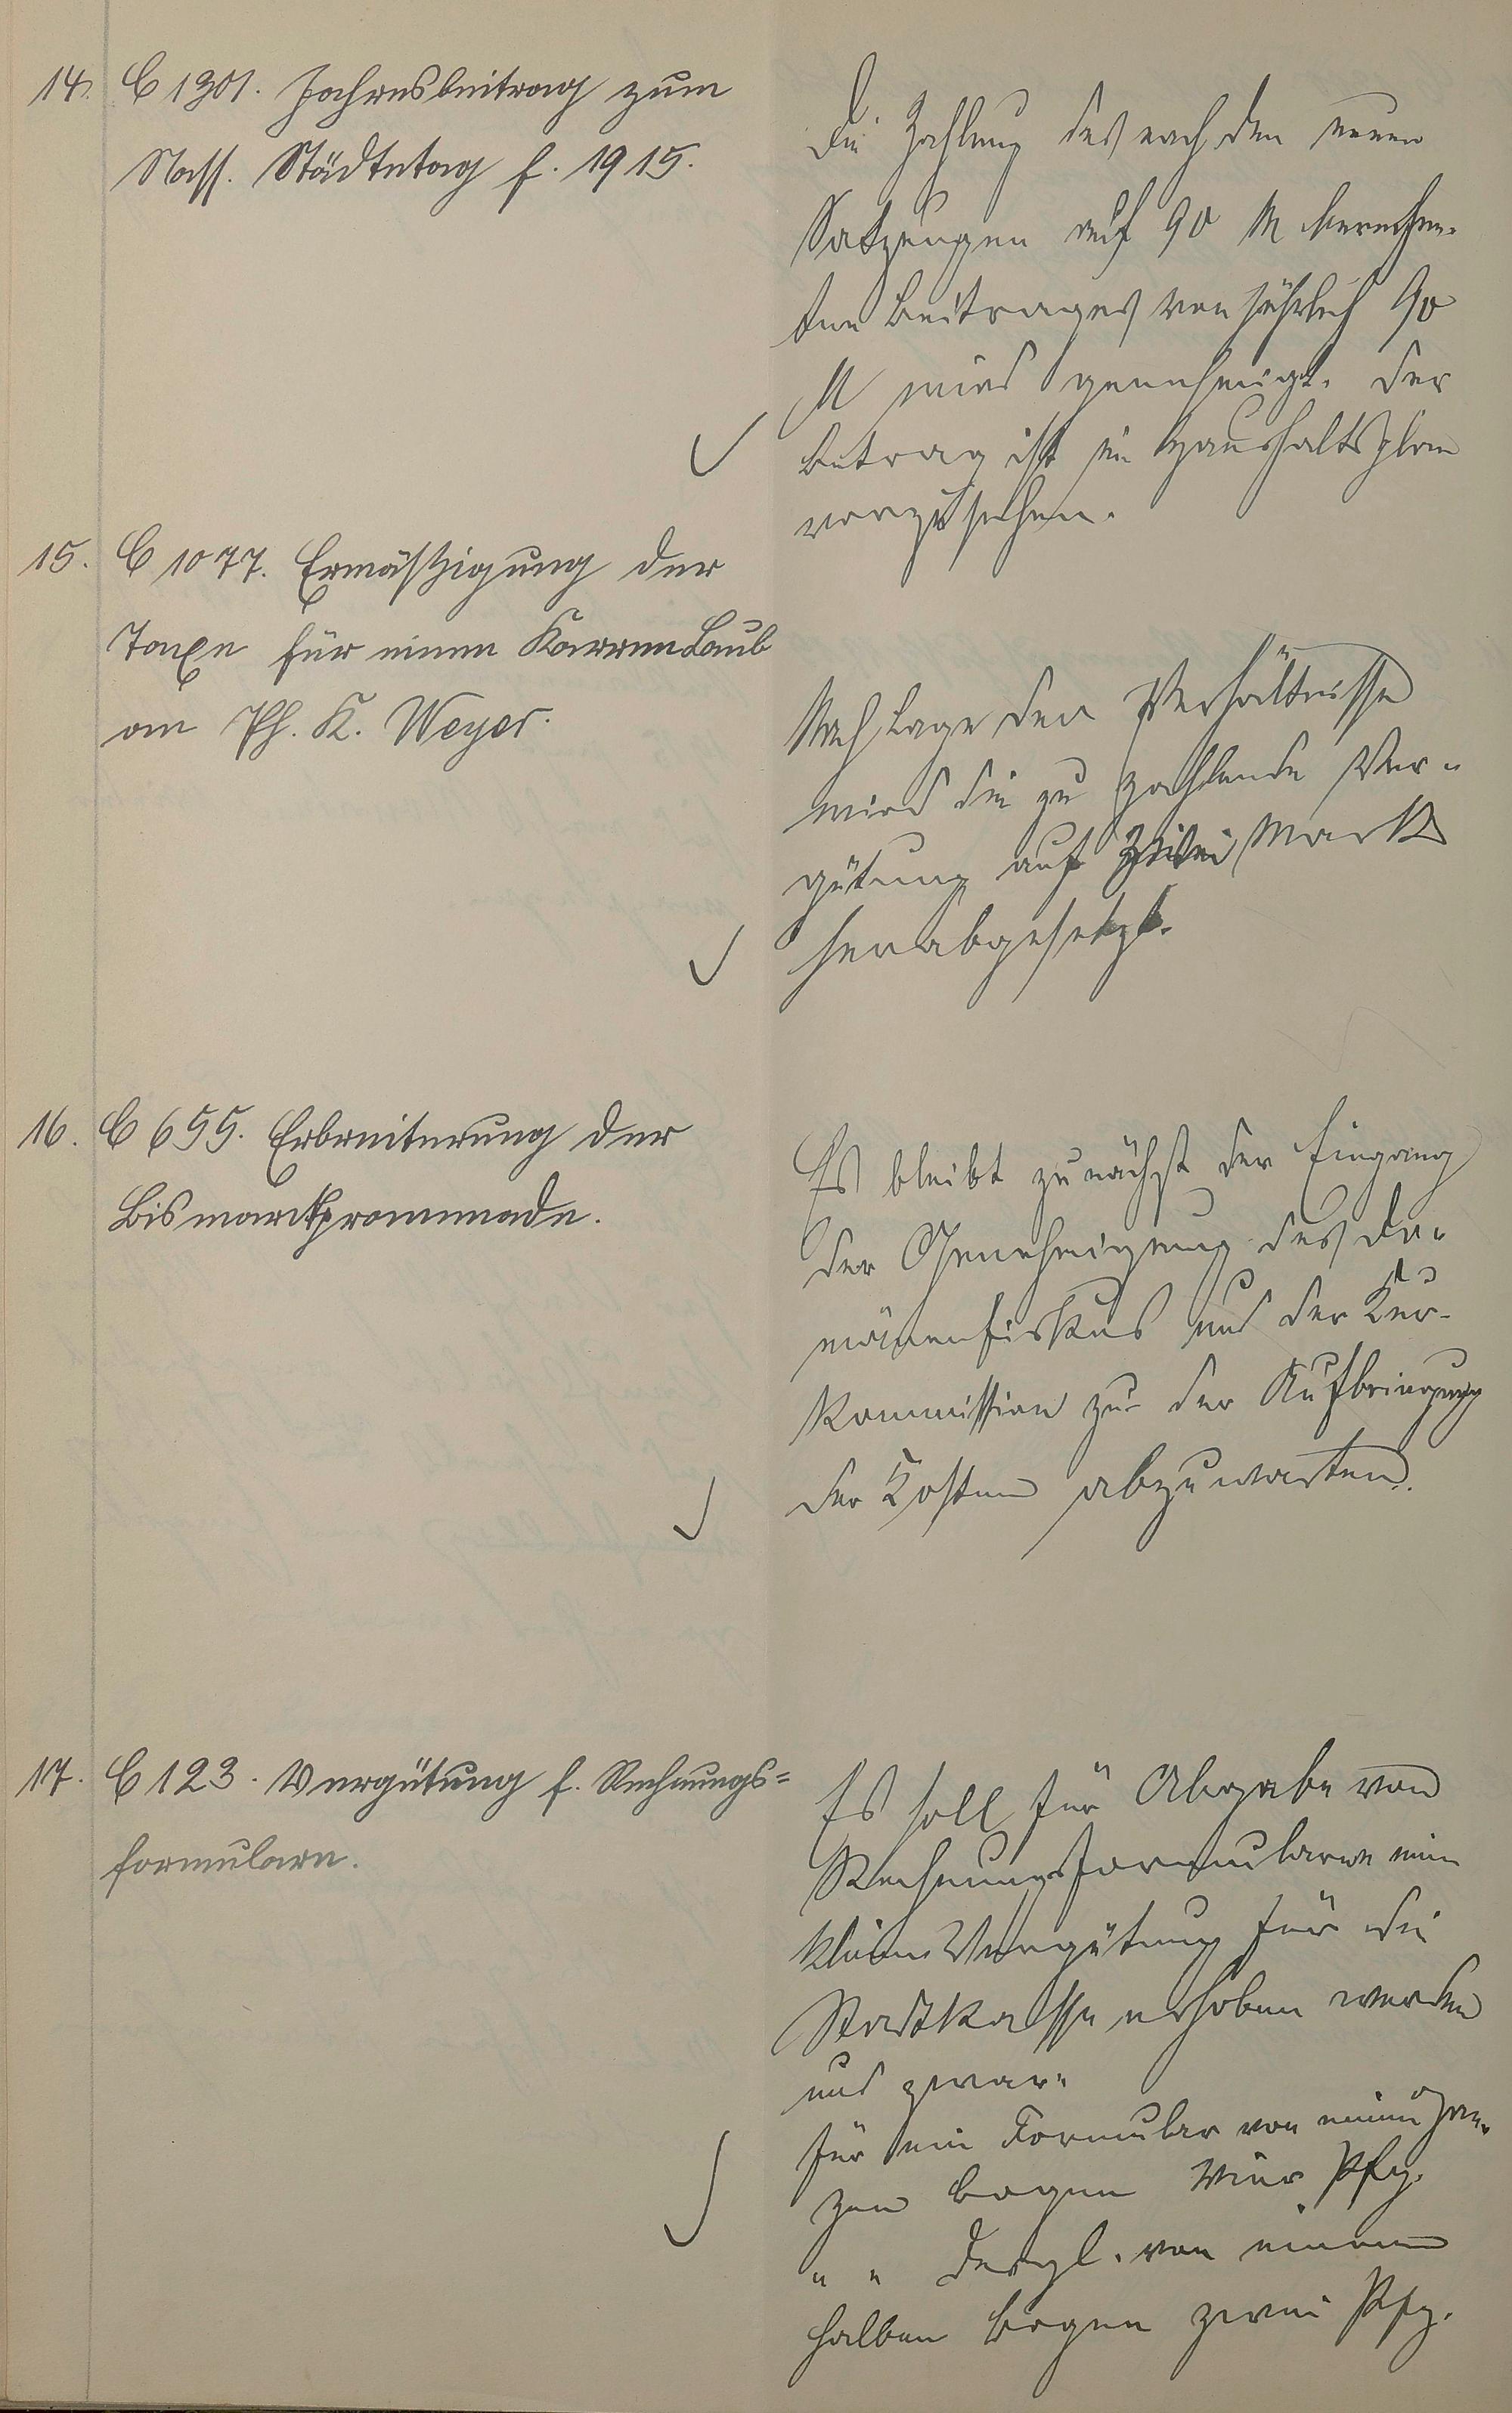 14. C 1301. Jahresbeitrag zum
Nass. Städtetag f. 1915.
Die Zahlung des nach den neuen
Satzungen auf 90 M berechne-
ten Beitrages von jährlich 90
M wird genehmigt. Der
Betrag ist im Haushaltsplan
vorzusehen.
15. C 1077. Ermäßigung der
Taxe für einen Karren Laub
an Ph. K. Weyer.
Nach Lage der Verhältnisse
wird die zu zahlende Ver-
gütung auf Mark
herabgesetzt.
16. C 655. Erbreiterung der
Bismarckpromenade.
Es bleibt zunächst der Eingang
der Genehmigung des Do-
mänenfiskus und der Kur-
kommission zu der Aufbringung
der Kosten abzuwarten.
17. C 123. Vergütung f. Rechnungs=
formulare.
Es soll für Abgabe von
Rechnungsformularen eine
kleine Vergütung für die
Stadtkasse erhoben werden
und zwar:
für ein Formular von einem gan-
zen Bogen vier Pfg.
" " dergl. von einem
halben Bogen zwei Pfg.